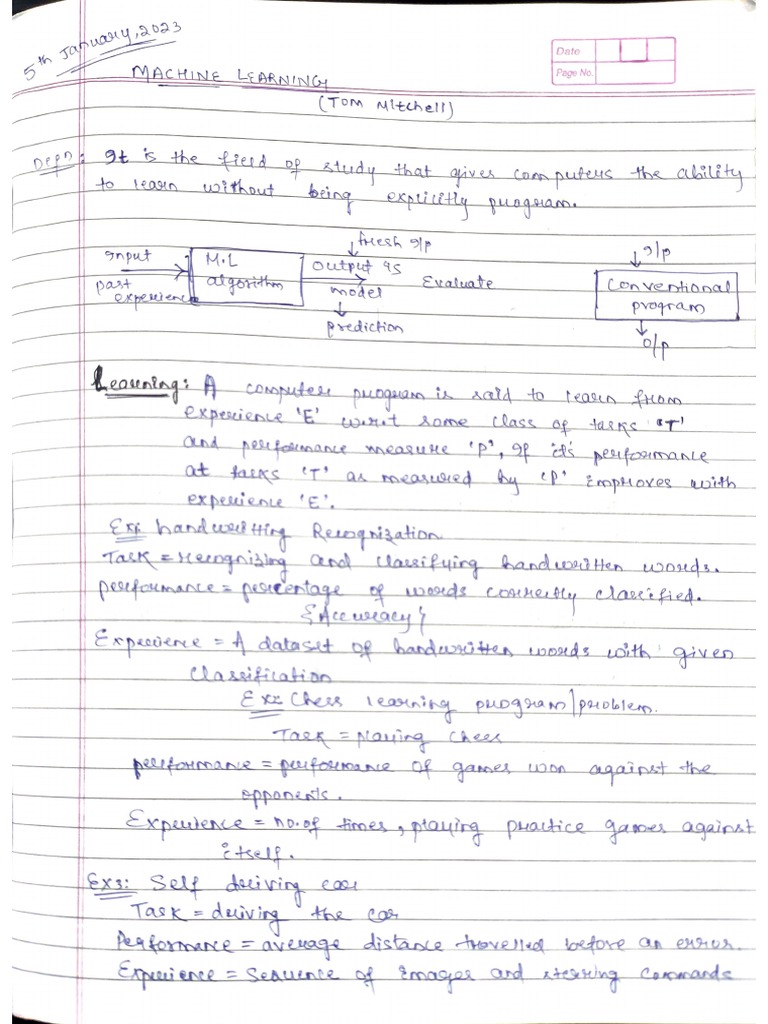 5th January, 2023
Date
Page No.
MACHINE LEARNING
(Tom Mitchell)
Defn: It is the field of study that gives computers the ability
to learn without being explicitly program.
Input
past
experience
M.L
algorithm
fresh I/p
output as
model
prediction
Evaluate
I/p
Conventional
program
O/p
Learning: A computer program is said to learn from
experience 'E' w.r.t some class of tasks 'T'
and performance measure 'P', If its performance
at tasks 'T' as measured by 'P' improves with
experience 'E'.
Ex1: handwritting Recognization
Task = recognizing and classifying handwritten words.
performance = percentage of words correctly classified.
{Accuracy}
Experience = A dataset of handwritten words with given
classification
Ex2: Chess learning program/problem.
Task = playing chess
performance = performance of games won against the
opponents.
Experience = no. of times, playing practice games against
itself.
Ex3: Self driving car
Task = driving the car
Performance = average distance travelled before an error.
Experience = Sequence of images and steering commands